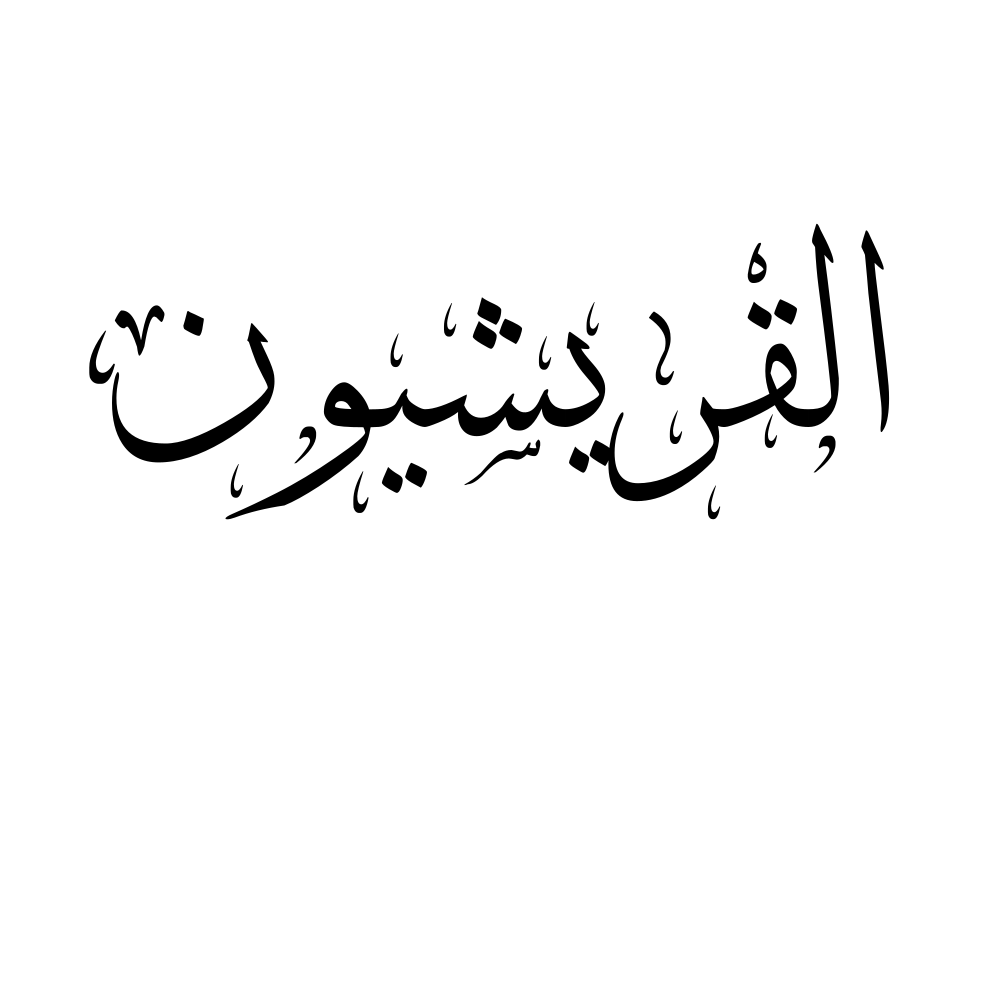 القريشيون